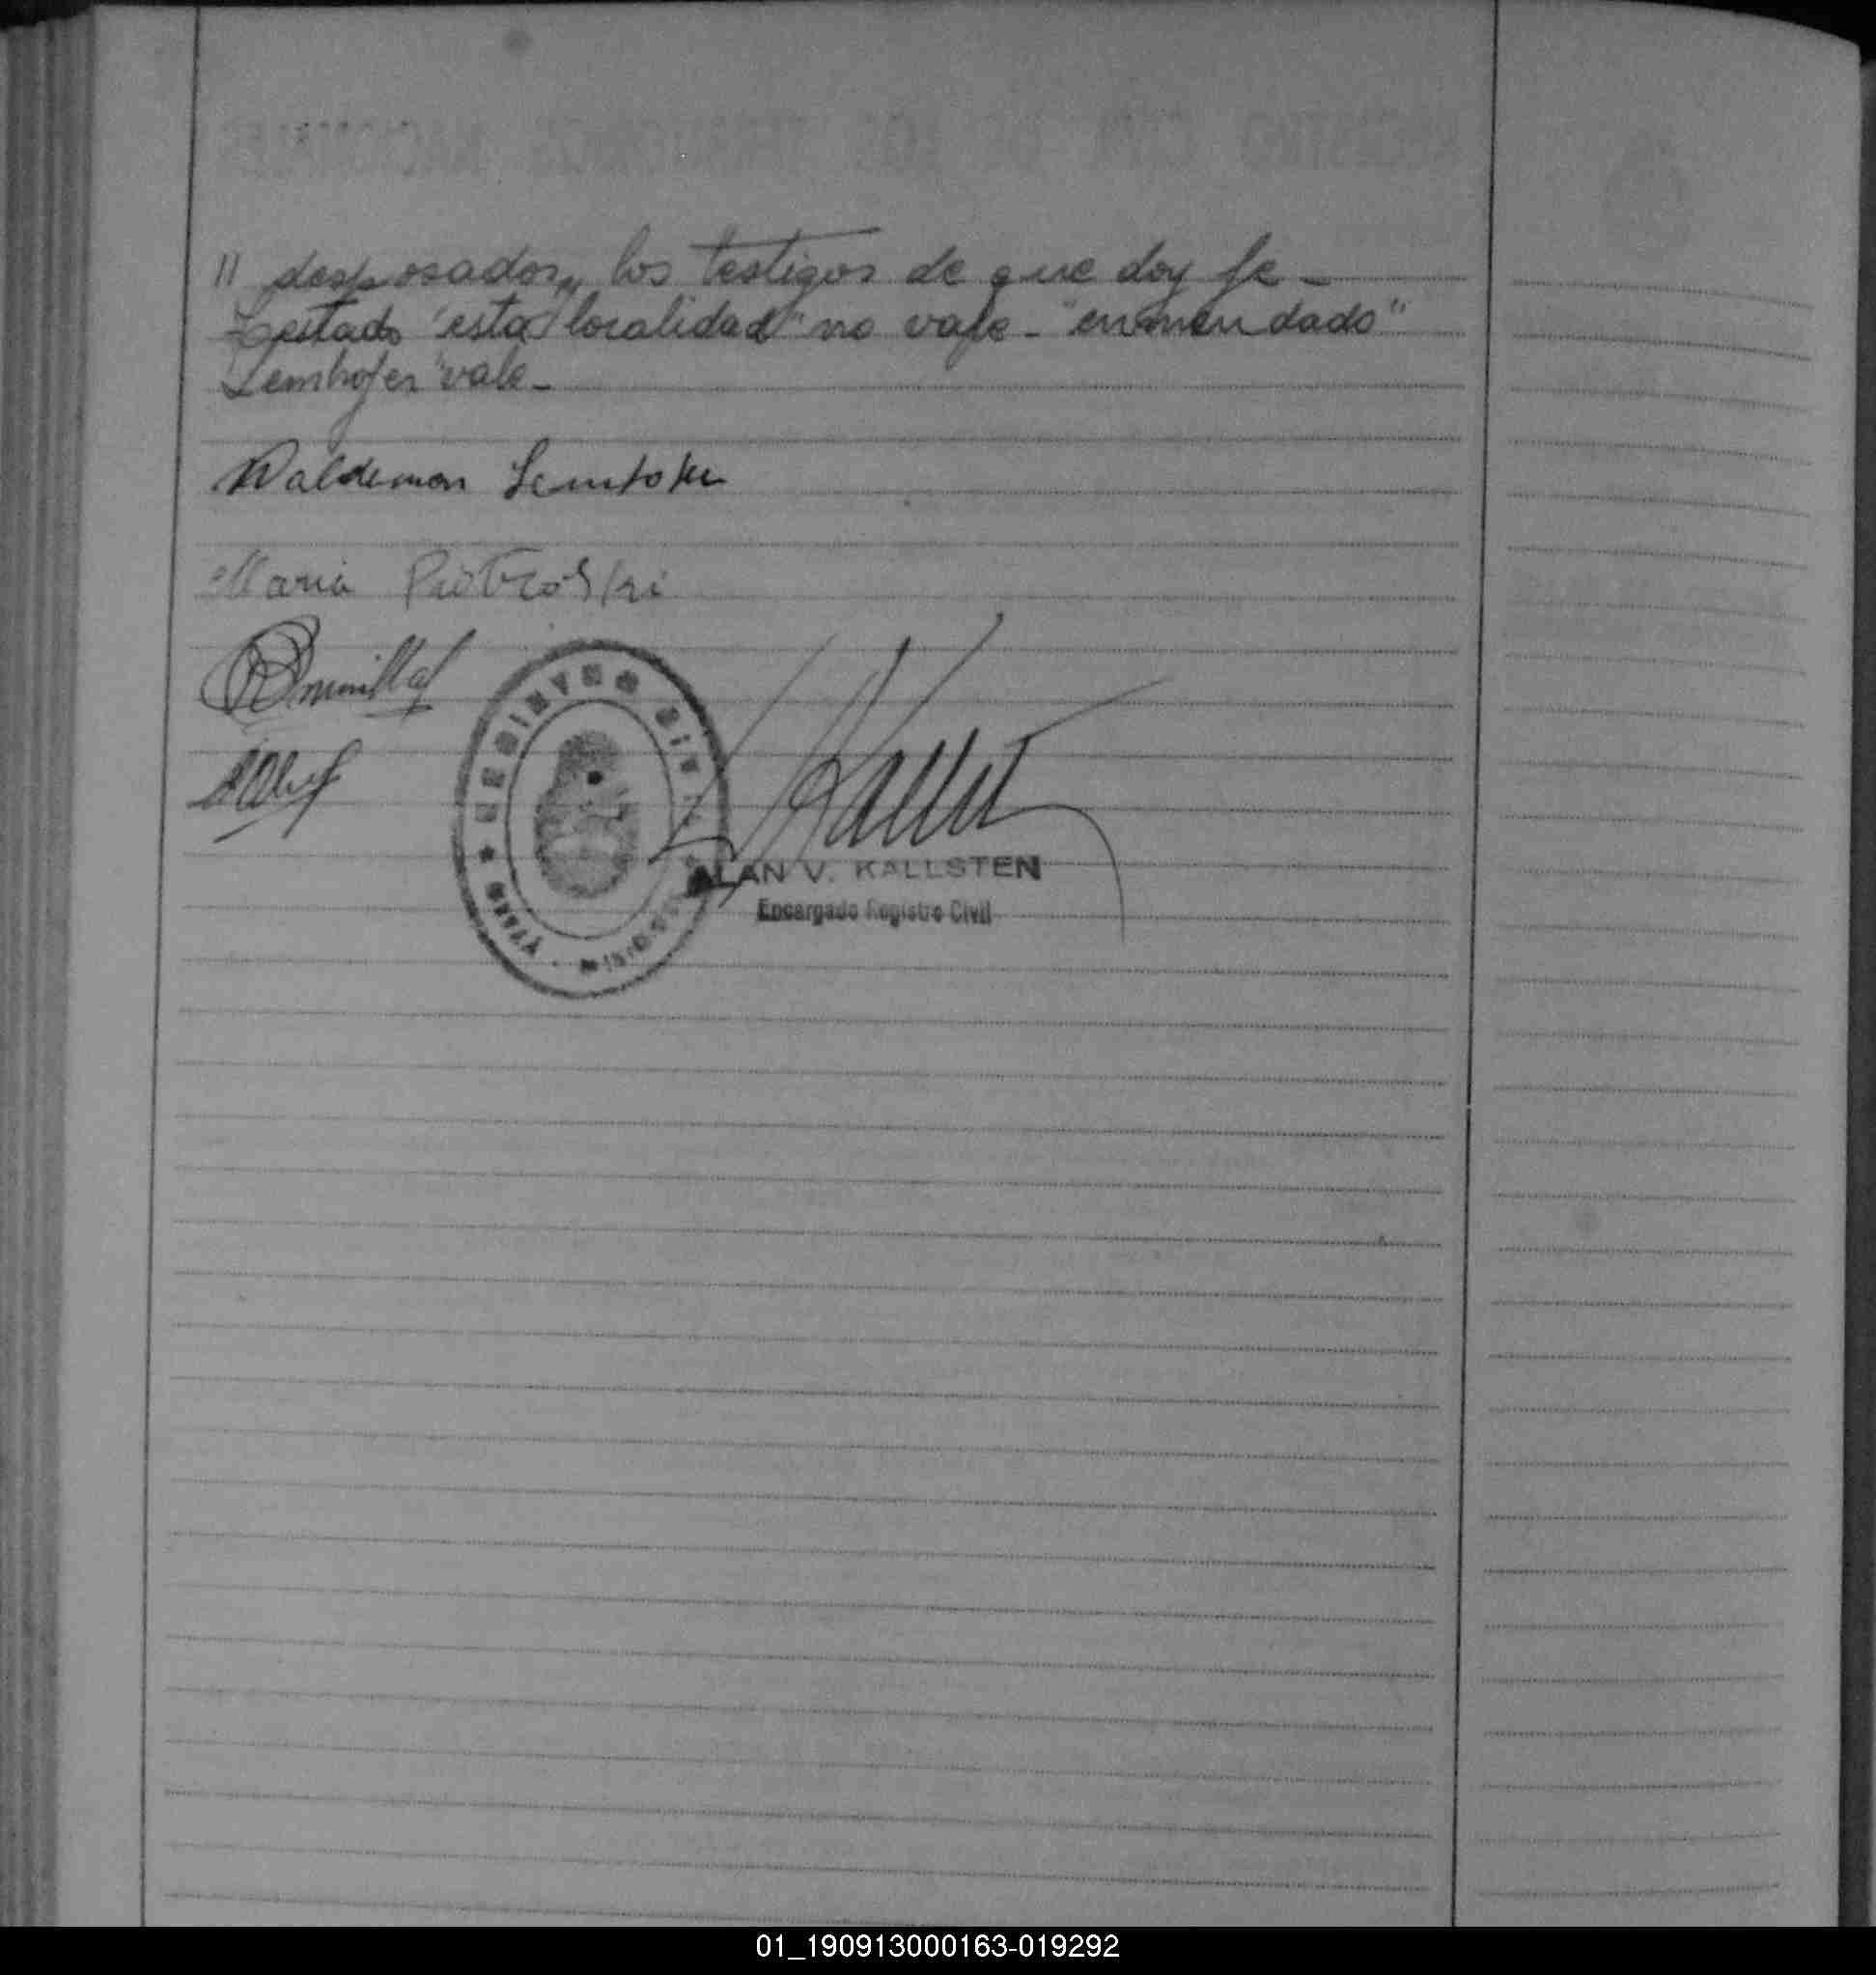 " desposados, los testigos de que doy fe -
Testado "esta localidad" no vale - "enmendado"
Lemhofer "vale -
Waldemar Lemhofer
Maria Piotroski
ALAN V. KALLSTEN
Encargado Registro Civil
01_190913000163-019292